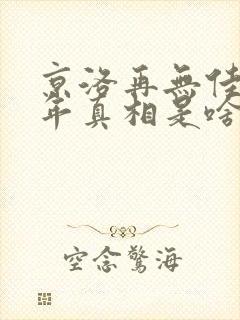 京洛再無佳
年真相是啥
空念驚海